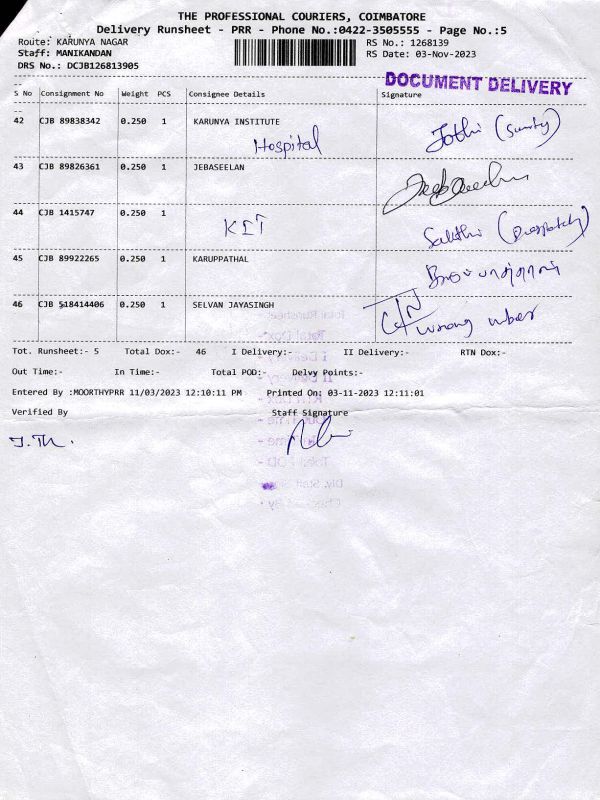 THE PROFESSIONAL COURIERS, COIMBATORE
Delivery Runsheet - PRR - Phone No.:0422-3505555 - Page No.:5
Route: KARUNYA NAGAR RS No.: 1268139
Staff: MANIKANDAN RS Date: 03-Nov-2023
DRS No.: DCJB126813905
DOCUMENT DELIVERY
S No Consignment No Weight PCS Consignee Details Signature
42 CJB 89838342 0.250 1 KARUNYA INSTITUTE
Hospital Jothi
43 CJB 89826361 0.250 1 JEBASEELAN
44 CJB 1415747 0.250 1
KIT Sakthi
45 CJB 89922265 0.250 1 KARUPPATHAL
46 CJB 518414406 0.250 1 SELVAN JAYASINGH
C/N wrong
Tot. Runsheet:- 5 Total Dox:- 46 I Delivery:- II Delivery:- RTN Dox:-
Out Time:- In Time:- Total POD:- Delvy Points:-
Entered By :MOORTHYPRR 11/03/2023 12:10:11 PM Printed On: 03-11-2023 12:11:01
Verified By Staff Signature